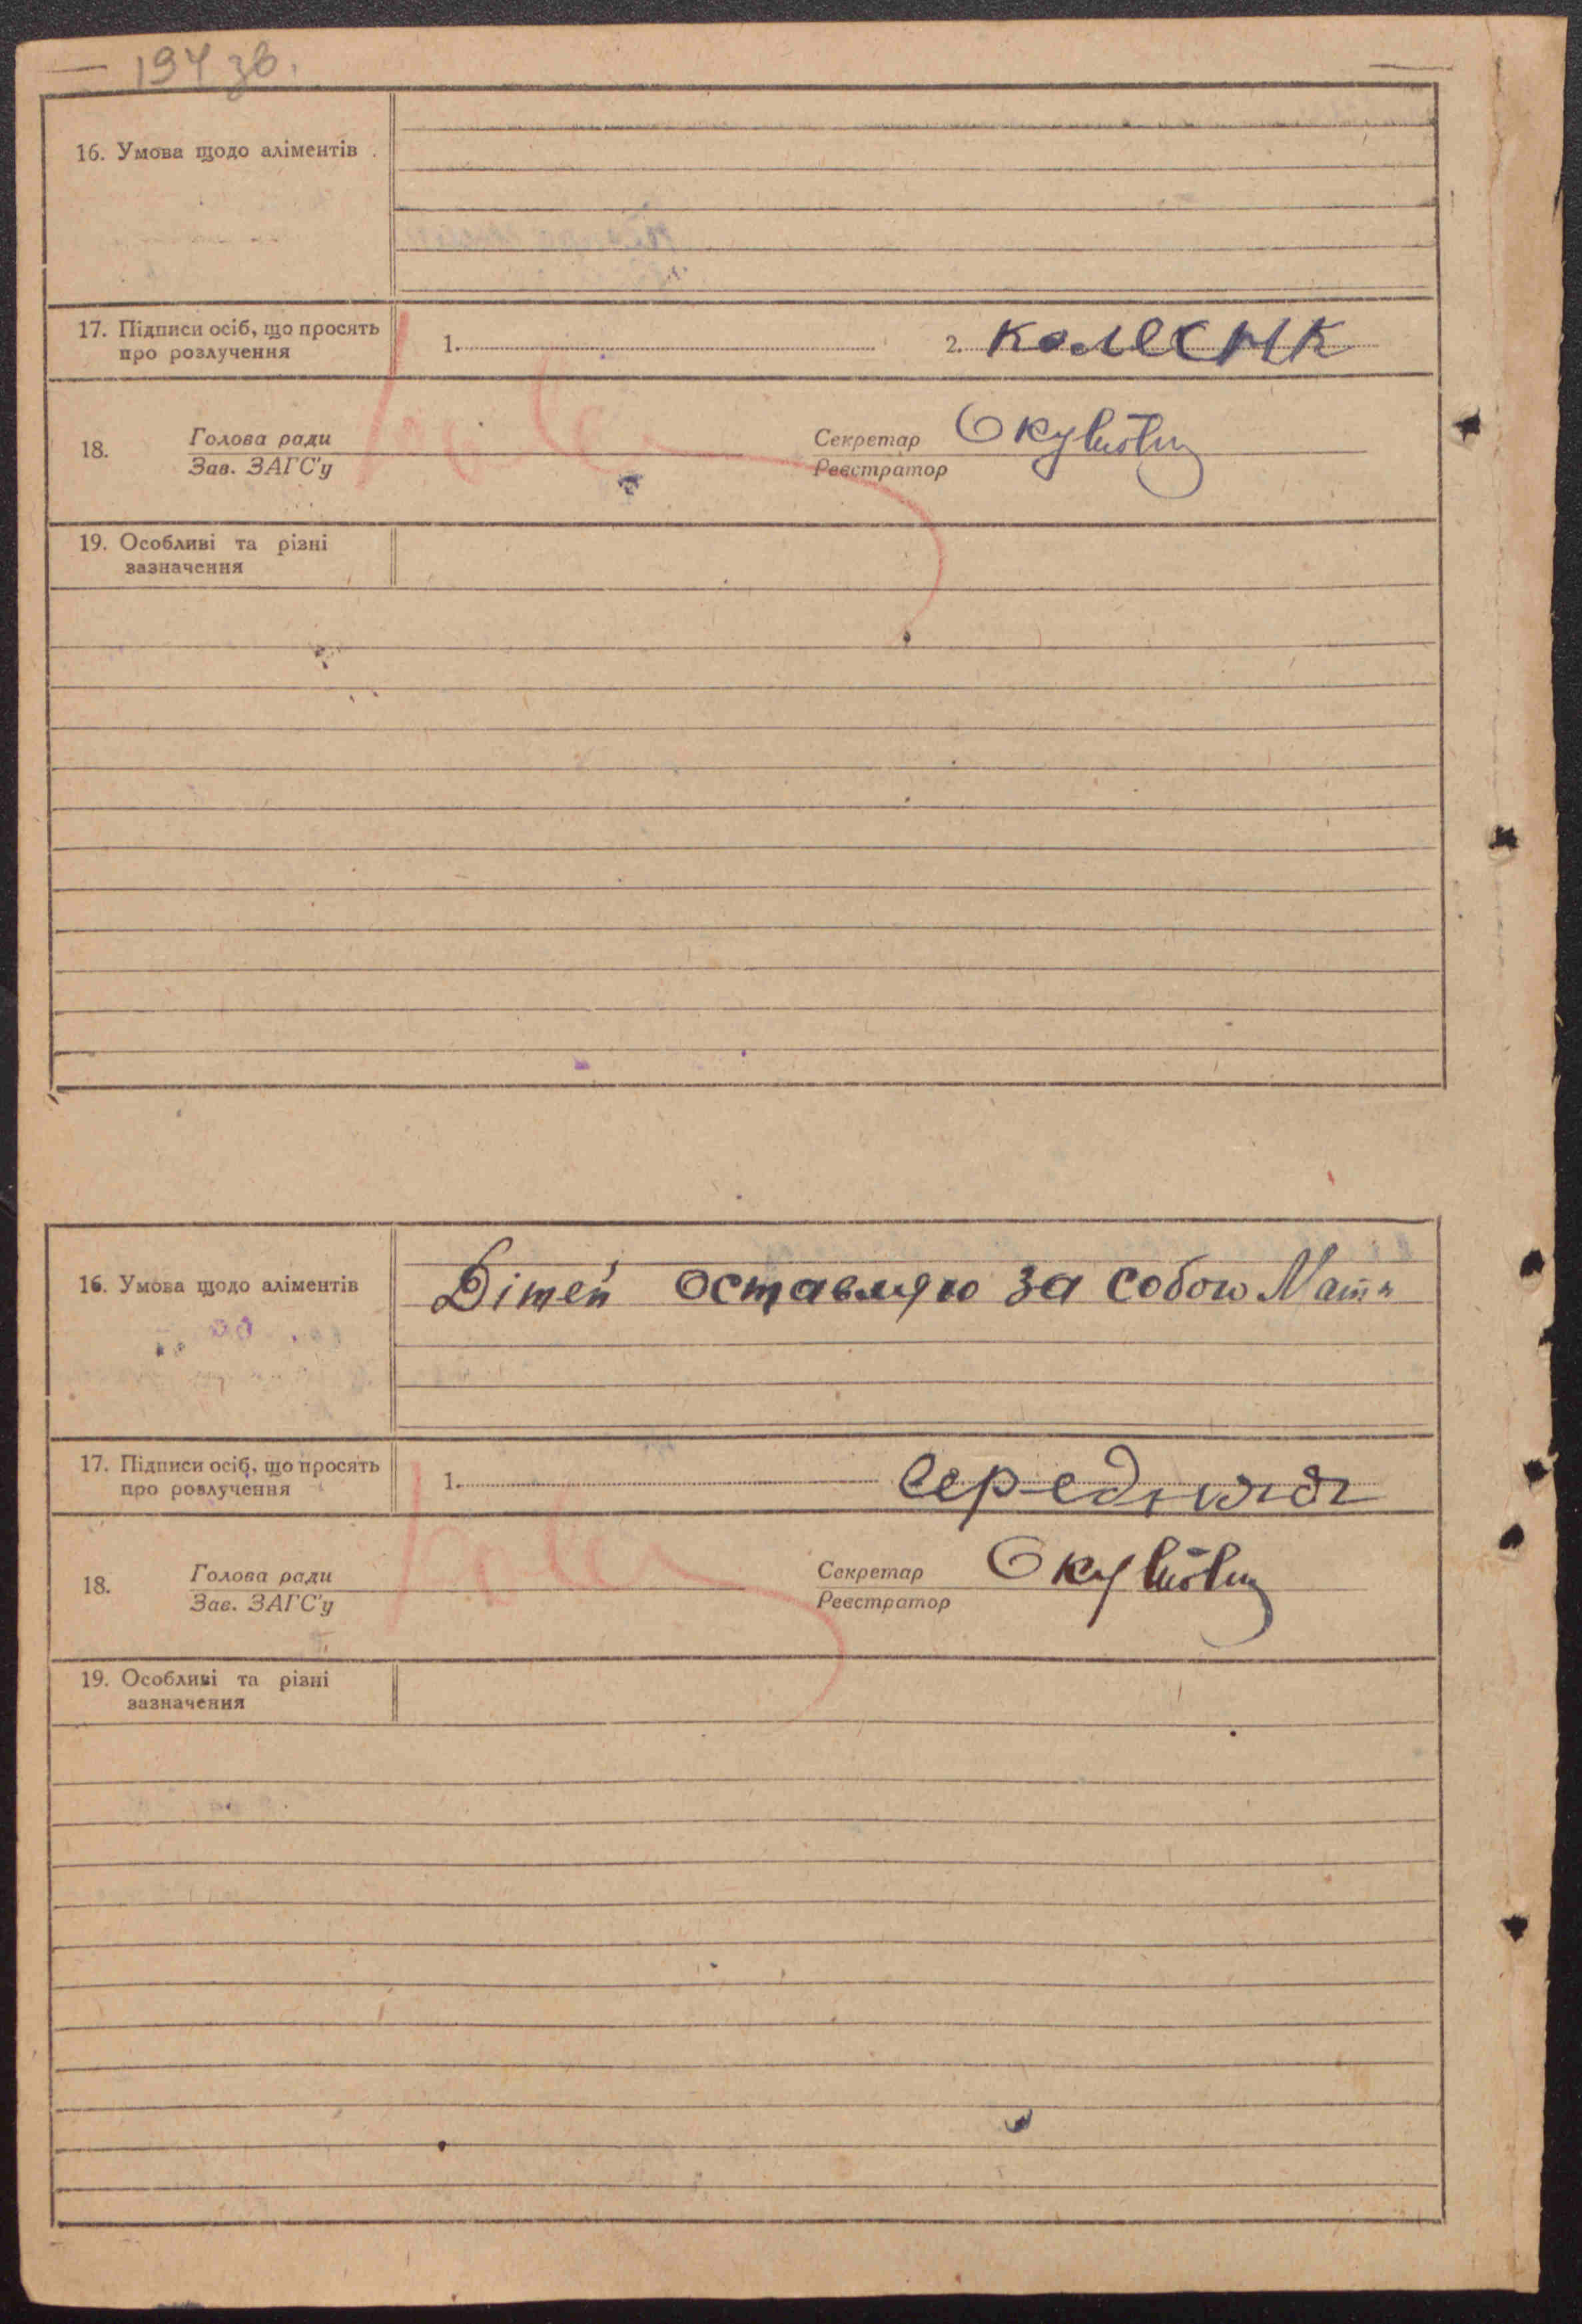 194 зв.
16. Умова щодо аліментів
17. Підписи осіб, що просять
про розлучення
1.
2. Колесник
18.
Голова ради
Зав. ЗАГС'у
Секретар
Реєстратор
19. Особливі та різні
зазначення
16. Умова щодо аліментів
Дітей оставляю за собою Мати
17. Підписи осіб, що просять
про розлучення
1.
18.
Голова ради
Зав. ЗАГС'у
Секретар
Реєстратор
19. Особливі та різні
зазначення